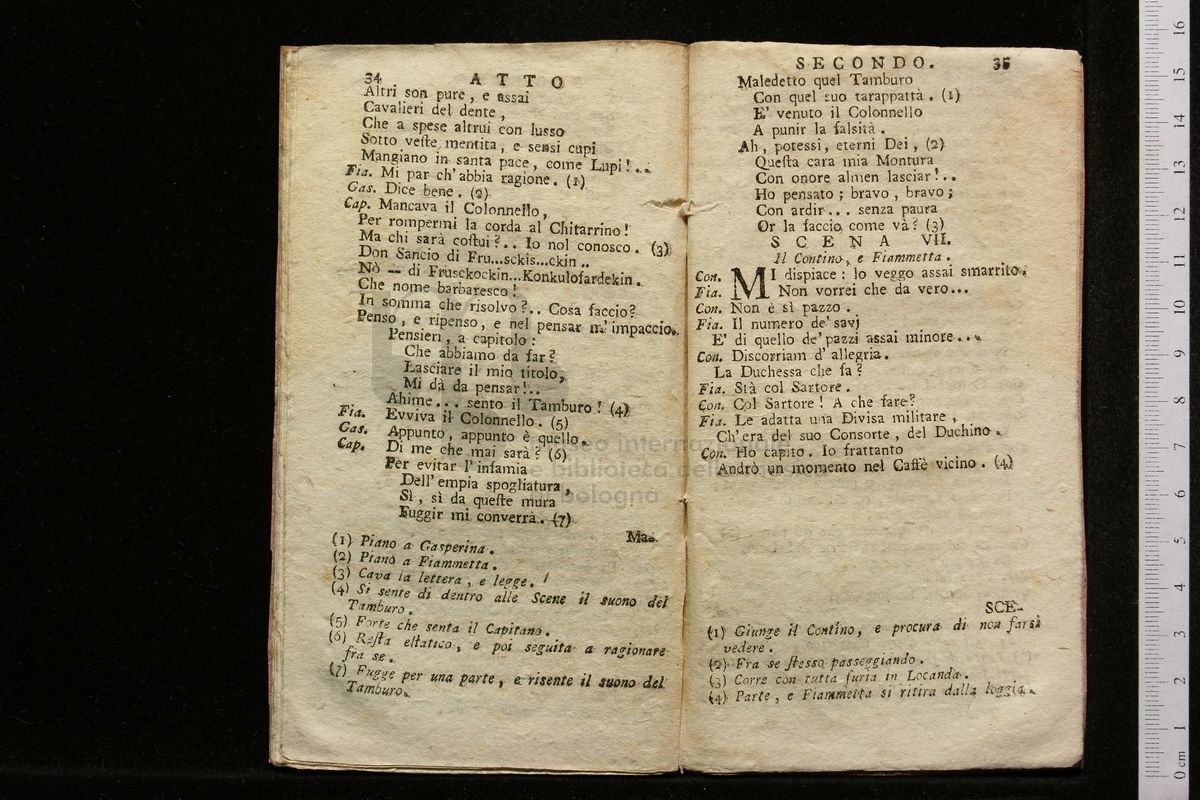 34 ATTO
Altri son pure, e assai
Cavalieri del dente,
Che a spese altrui con lusso
Sotto veste mentita, e sensi cupi
Mangiano in santa pace, come Lupi!..
Fia. Mi par ch'abbia ragione. (1)
Gas. Dice bene. (2)
Cap. Mancava il Colonnello,
Per rompermi la corda al Chitarrino!
Ma chi sarà costui?.. Io nol conosco. (3)
Don Sancio di Fru...sckis...ckin..
Nò — di Frusckockin...Konkulofardekin.
Che nome barbaresco!
In somma che risolvo?.. Cosa faccio?
Penso, e ripenso, e nel pensar m'impaccio.
Pensieri, a capitolo:
Che abbiamo da far?
Lasciare il mio titolo,
Mi dà da pensar!..
Ahime... sento il Tamburo! (4)
Fia. Evviva il Colonnello. (5)
Gas. Appunto, appunto è quello.
Cap. Di me che mai sarà? (6)
Per evitar l'infamia
Dell'empia spogliatura,
Sì, sì da queste mura
Fuggir mi converrà. (7)
Ma-
(1) Piano a Gasperina.
(2) Piano a Fiammetta.
(3) Cava la lettera, e legge.
(4) Si sente di dentro alle Scene il suono del
Tamburo.
(5) Forte che senta il Capitano.
(6) Resta estatico, e poi seguita a ragionare
fra se.
(7) Fugge per una parte, e risente il suono del
Tamburo.
SECONDO. 35
Maledetto quel Tamburo
Con quel suo tarappattà. (1)
E' venuto il Colonnello
A punir la falsità.
Ah, potessi, eterni Dei, (2)
Questa cara mia Montura
Con onore almen lasciar!..
Ho pensato; bravo, bravo;
Con ardir... senza paura
Or la faccio come và? (3)
SCENA VII.
Il Contino, e Fiammetta.
Con. MI dispiace: lo veggo assai smarrito.
Fia. Non vorrei che da vero...
Con. Non è sì pazzo.
Fia. Il numero de' savj
E' di quello de' pazzi assai minore...
Con. Discorriam d'allegria.
La Duchessa che fa?
Fia. Stà col Sartore.
Con. Col Sartore! A che fare?
Fia. Le adatta una Divisa militare,
Ch'era del suo Consorte, del Duchino.
Con. Ho capito. Io frattanto
Andrò un momento nel Caffè vicino. (4)
SCE-
(1) Giunge il Contino, e procura di non farsi
vedere.
(2) Fra se stesso passeggiando.
(3) Corre con tutta furia in Locanda.
(4) Parte, e Fiammetta si ritira dalla loggia.
museo internazionale
e biblioteca della musica
di bologna
0 cm 1 2 3 4 5 6 7 8 9 10 11 12 13 14 15 16